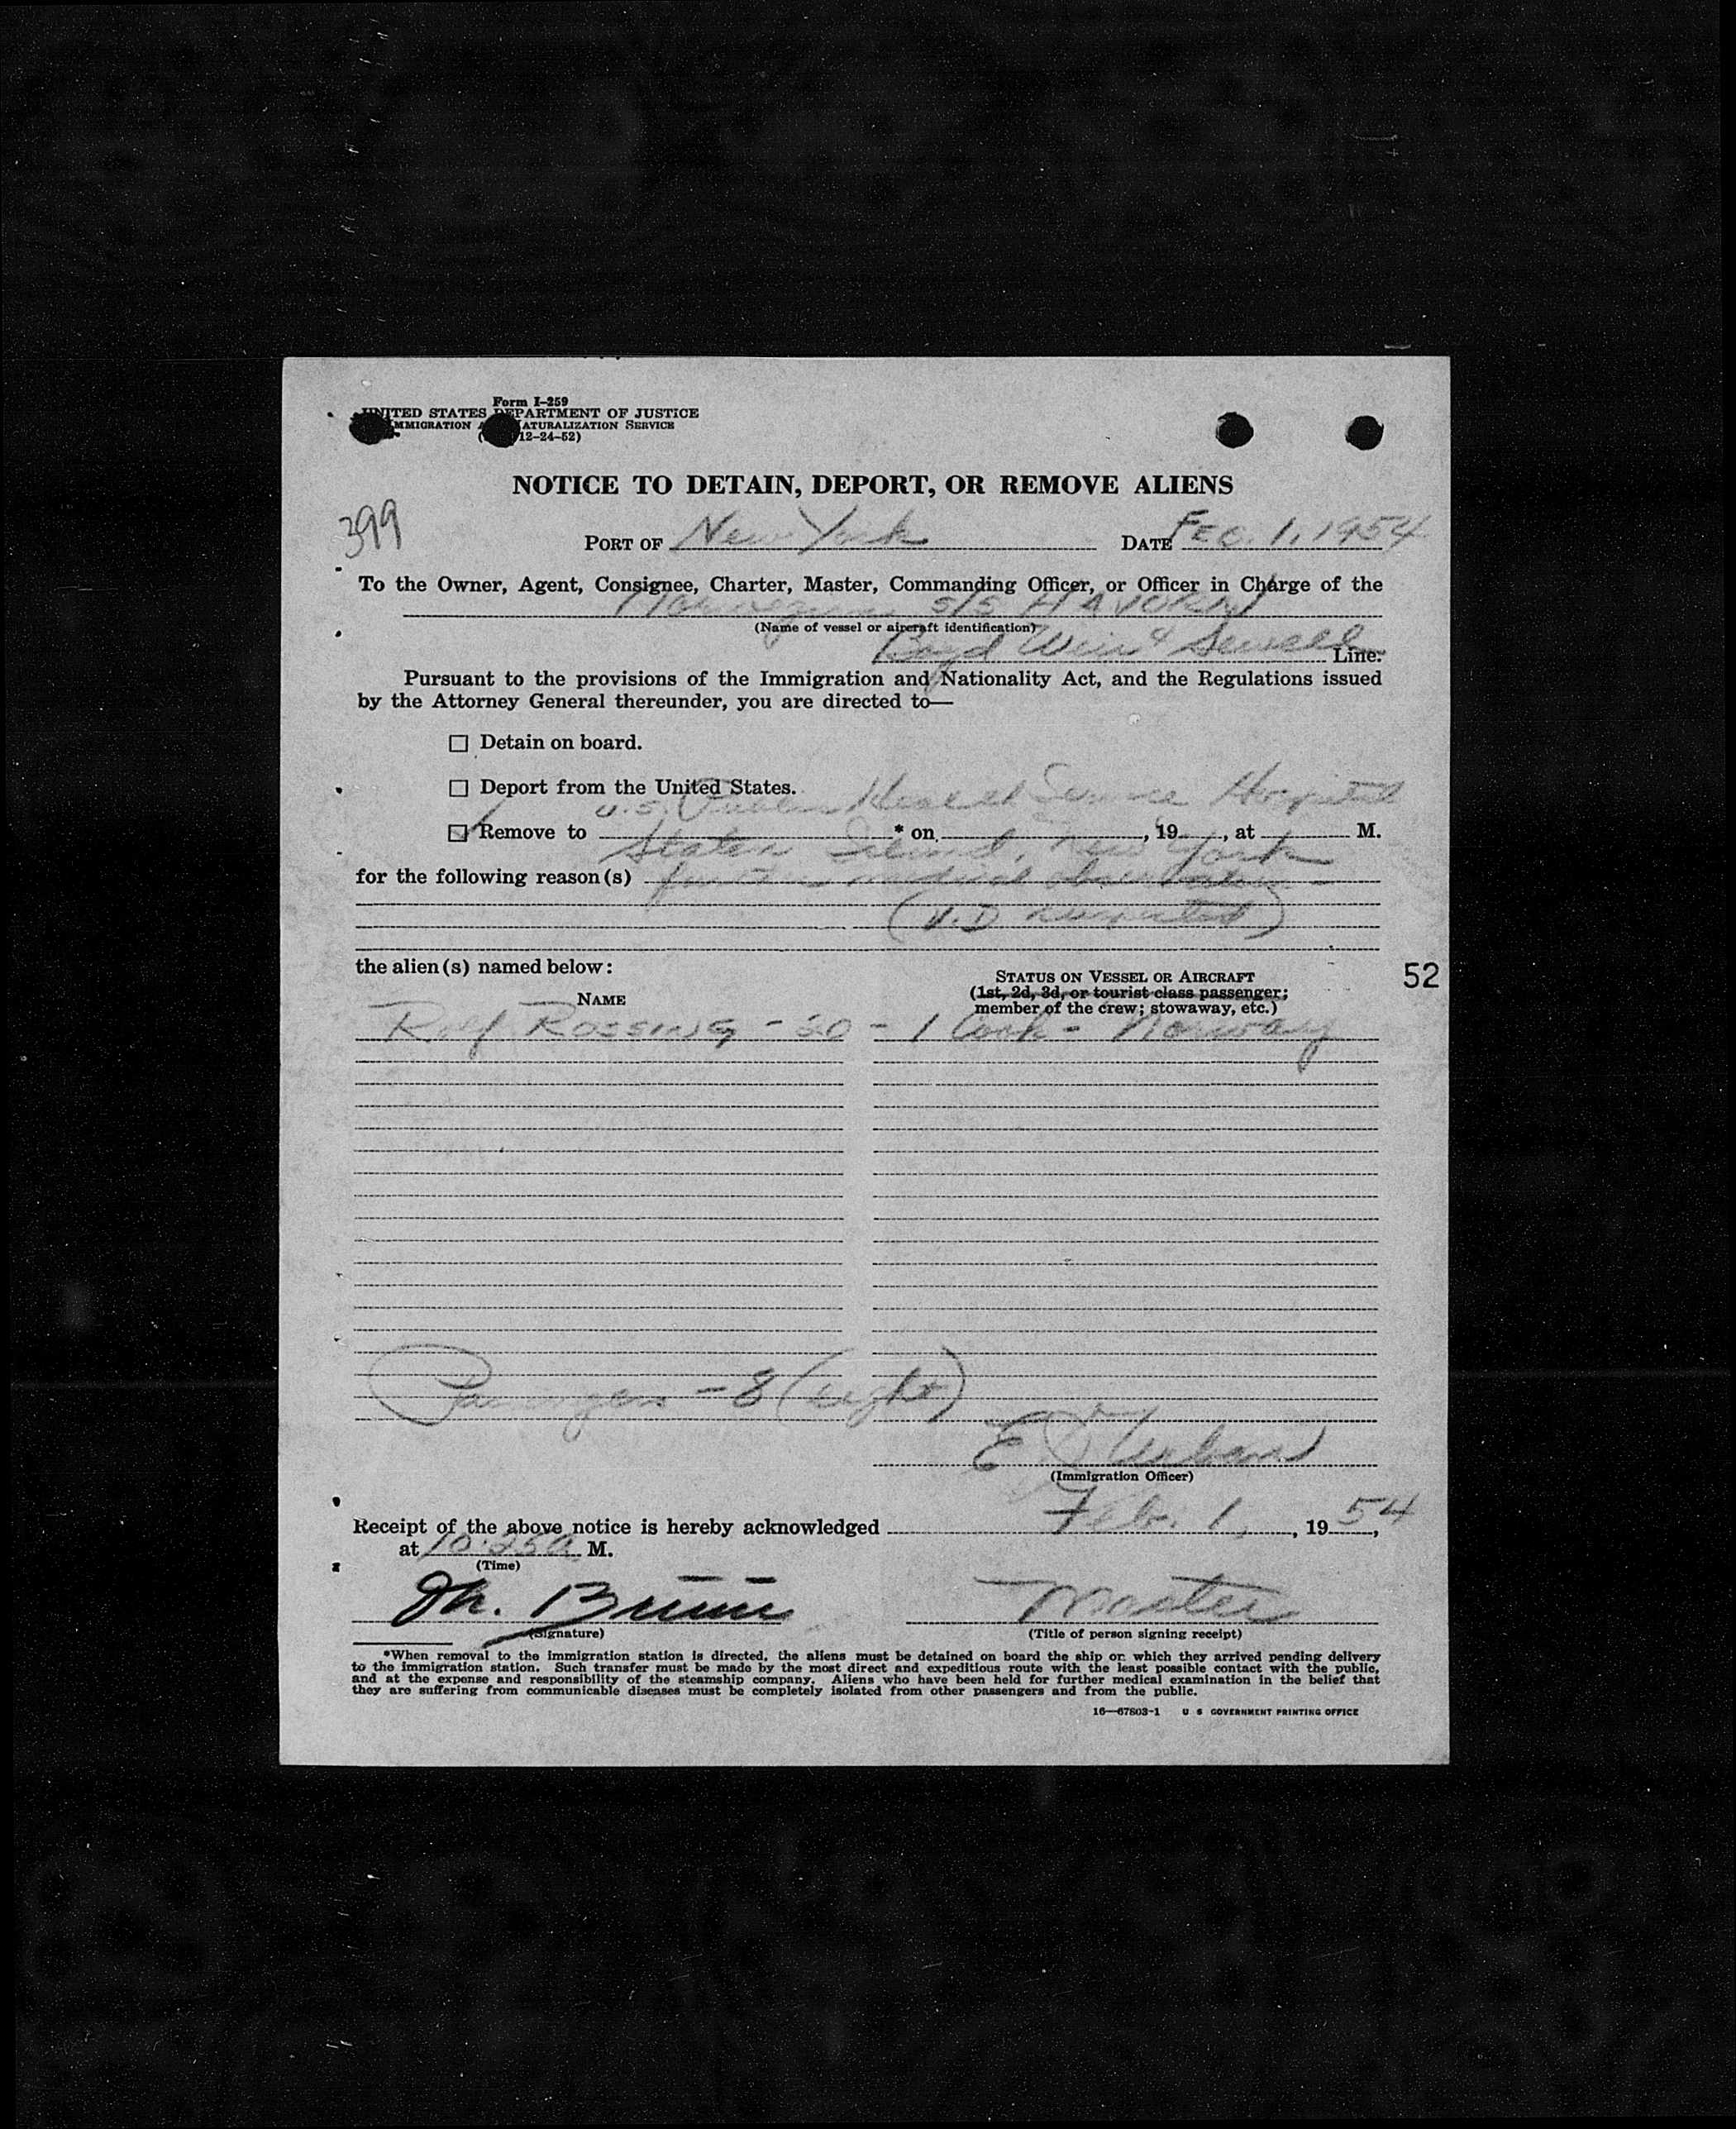 Form I-259
UNITED STATES DEPARTMENT OF JUSTICE
IMMIGRATION NATURALIZATION SERVICE
12-24-52)
NOTICE TO DETAIN, DEPORT, OR REMOVE ALIENS
399
PORT OF New York DATE Feb. 1, 1954
To the Owner, Agent, Consignee, Charter, Master, Commanding Officer, or Officer in Charge of the
Norwegian S/S HAVORN
(Name of vessel or aircraft identification)
Boyd Weir & Sewell Line.
Pursuant to the provisions of the Immigration and Nationality Act, and the Regulations issued
by the Attorney General thereunder, you are directed to—
☐ Detain on board.
☐ Deport from the United States.
U.S. Public Health Service Hospital
☑ Remove to * on , 19 , at M.
Staten Island, New York
for the following reason(s) further medical observation -
(V.D suspected)
the alien(s) named below:
52
NAME
STATUS ON VESSEL OR AIRCRAFT
(1st, 2d, 3d, or tourist class passenger;
member of the crew; stowaway, etc.)
Rolf ROSSING - 20 - 1 Cook - Norway
Passengers - 8 (eight)
E
(Immigration Officer)
Receipt of the above notice is hereby acknowledged Feb. 1, , 1954,
at 10:25a M.
(Time)
Master
(Signature)
(Title of person signing receipt)
*When removal to the immigration station is directed, the aliens must be detained on board the ship on which they arrived pending delivery
to the immigration station. Such transfer must be made by the most direct and expeditious route with the least possible contact with the public,
and at the expense and responsibility of the steamship company. Aliens who have been held for further medical examination in the belief that
they are suffering from communicable diseases must be completely isolated from other passengers and from the public.
16—67803-1 U S GOVERNMENT PRINTING OFFICE